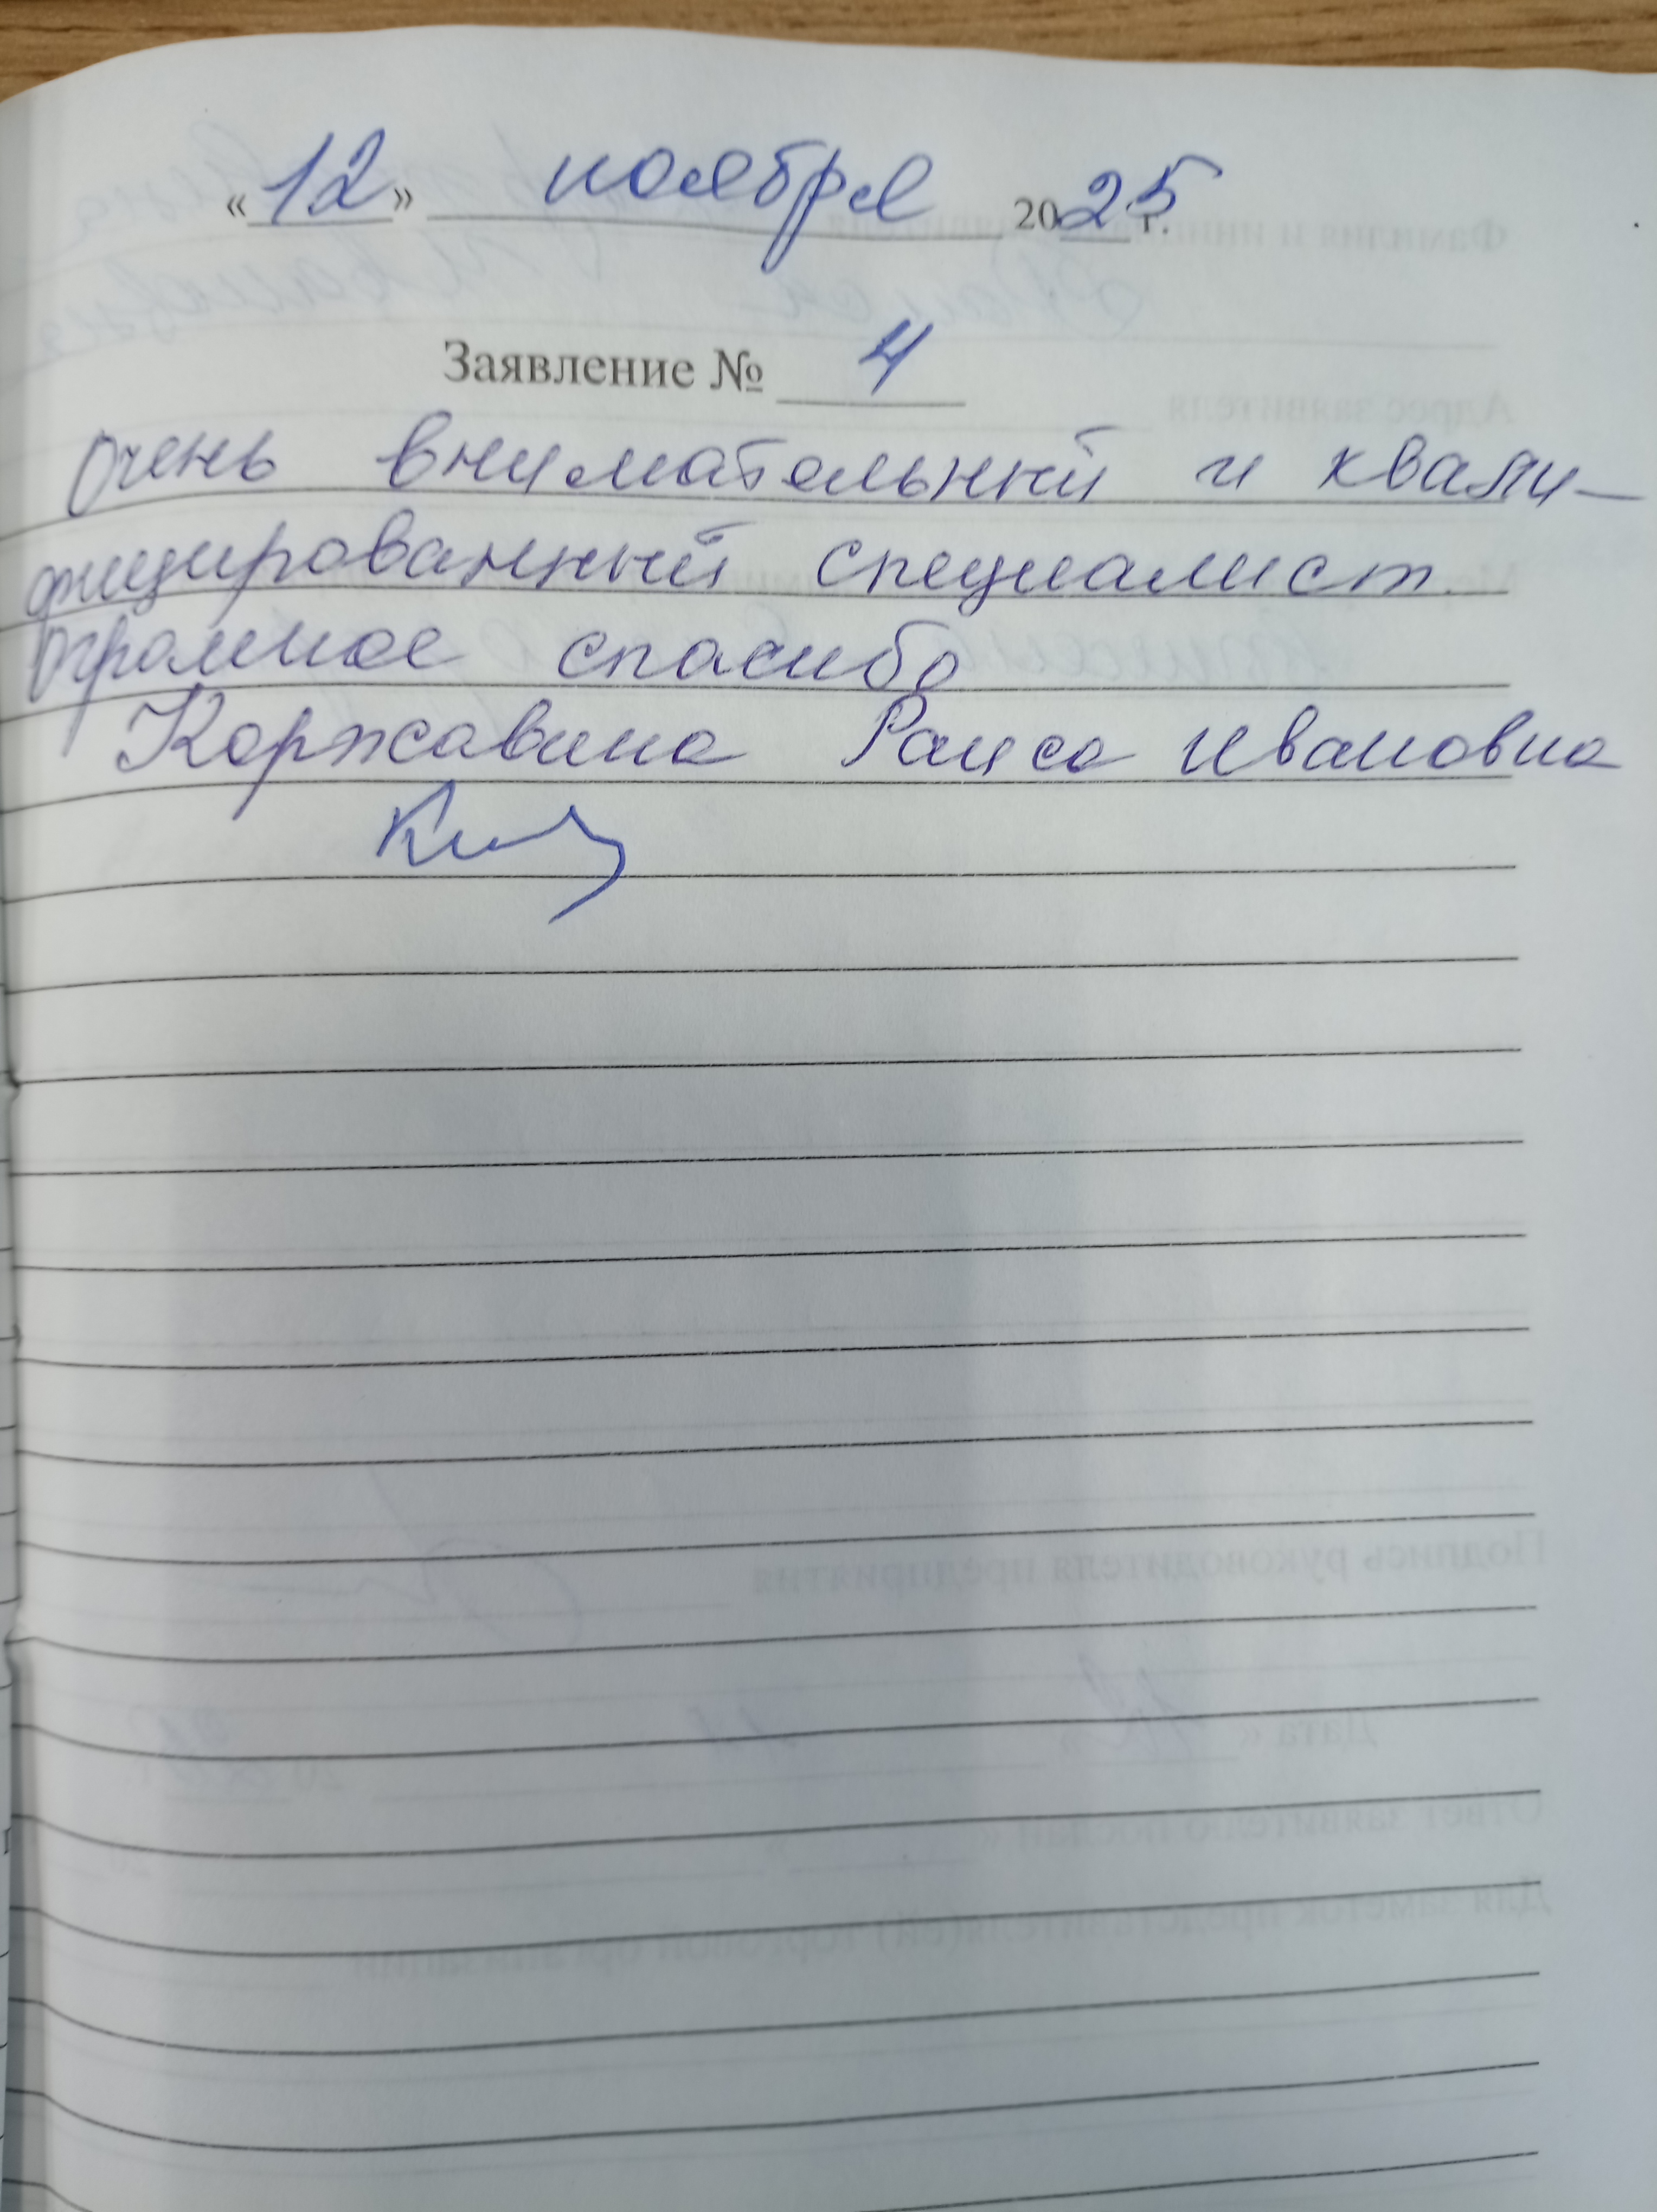 «12» ноября 2025 г.
Заявление № 4
Очень внимательный и квали-
фицированный специалист.
Огромное спасибо
Коржавина Раиса Ивановна